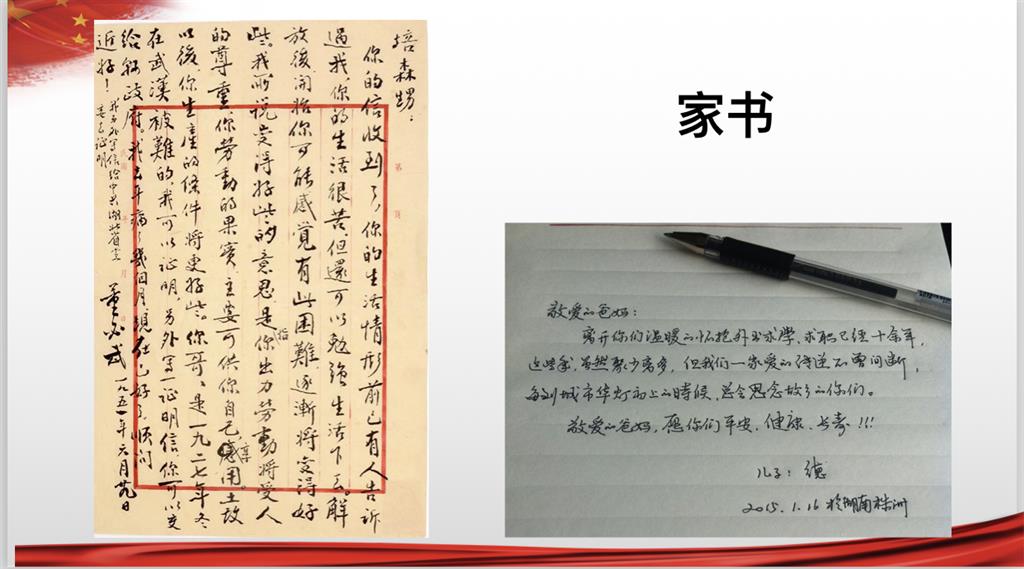 家书
培森甥：
你的信收到了，你的生活情形前已有人告訴
過我，你的生活很苦，但還可以勉強生活下去。解
放後開始你可能感覺有些困難，逐漸將变得好
些。我所說变得好些的意思是指你出力劳動將受人
的尊重，你劳動的果實主要可供你自己享用。土改
以後，你生產的條件將更好些。你哥哥是一九二七年冬
在武漢被難的，我可以証明，另外寫一証明信，你可以交
給縣政府。我去年病了幾個月，現在已好了。順問
近好！
我另外寫信給中共湖北省
委去証明
董必武 一九五一年六月廿九日
第 頁
敬爱的爸妈：
离开你们温暖的怀抱外出求学、求职已经十余年，
这些年，虽然聚少离多，但我们一家爱的传递不曾间断，
每到城市华灯初上的時候，总会思念故乡的你们。
敬爱的爸妈，愿你们平安、健康、长寿!!!
儿子：德
2015.1.16 於湖南株洲